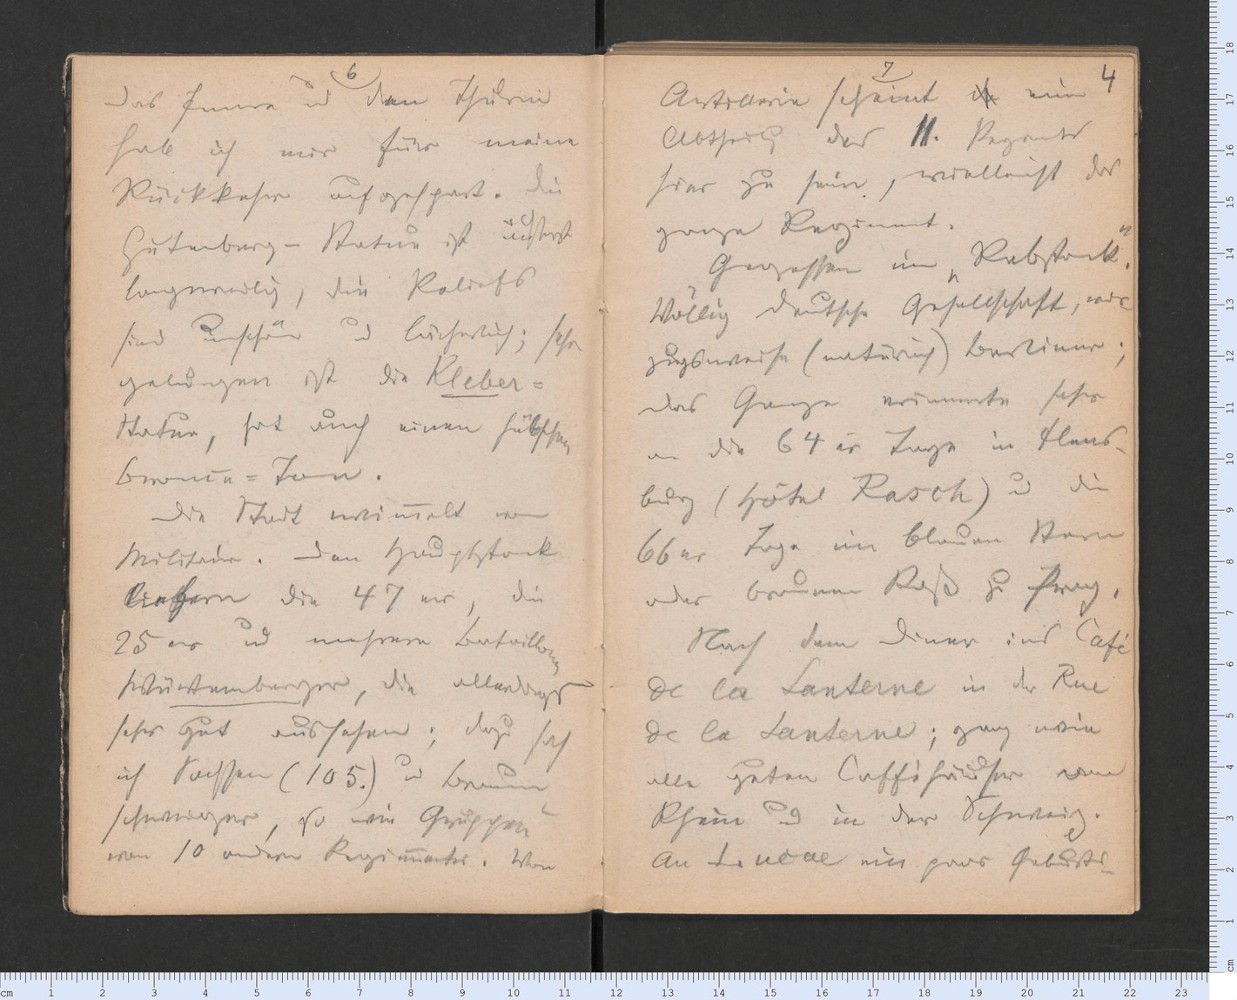 6
Das Innre u den Thurm
hab ich mir für meine
Rückkehr aufgespart. Die
Gutenberg-Statue ist äußerst
langweilig, die Reliefs
sind unschön u lächerlich; sehr
gelungen ist die Kleber=
Statue, hat auch einen hübschen
Bronce=Ton.
Die Stadt wim̅elt von
Militair. Den Hauptstock
liefern die 47 er, die
25 er u mehrere Bataillone
Würtemberger, die allerdings
sehr gut aussehen; dazu sah
ich Sachsen (105.) u Braun
schweiger, so wie Gruppen
von 10 andern Regim̅enter. Von
7
4
Artillerie scheint eine
Abtheilg des 11. Regmts
hier zu sein, vielleicht das
ganze Regiment.
Gegessen im „Rebstock".
Völlig deutsche Gesellschaft, vor
zugsweise (natürlich) Berliner;
das Ganze erinnerte sehr
an die 64 er Tage in Flens-
burg (Hôtel Rasch) u die
66er Tage im blauen Stern
oder braunen Roß zu Prag.
Nach dem Diner ins Café
de la Lanterne in der Rue
de la Lanterne; ganz wie
alle guten Cafféhäuser am
Rhein u in der Schweiz.
An Lucae ein paar Geburts-